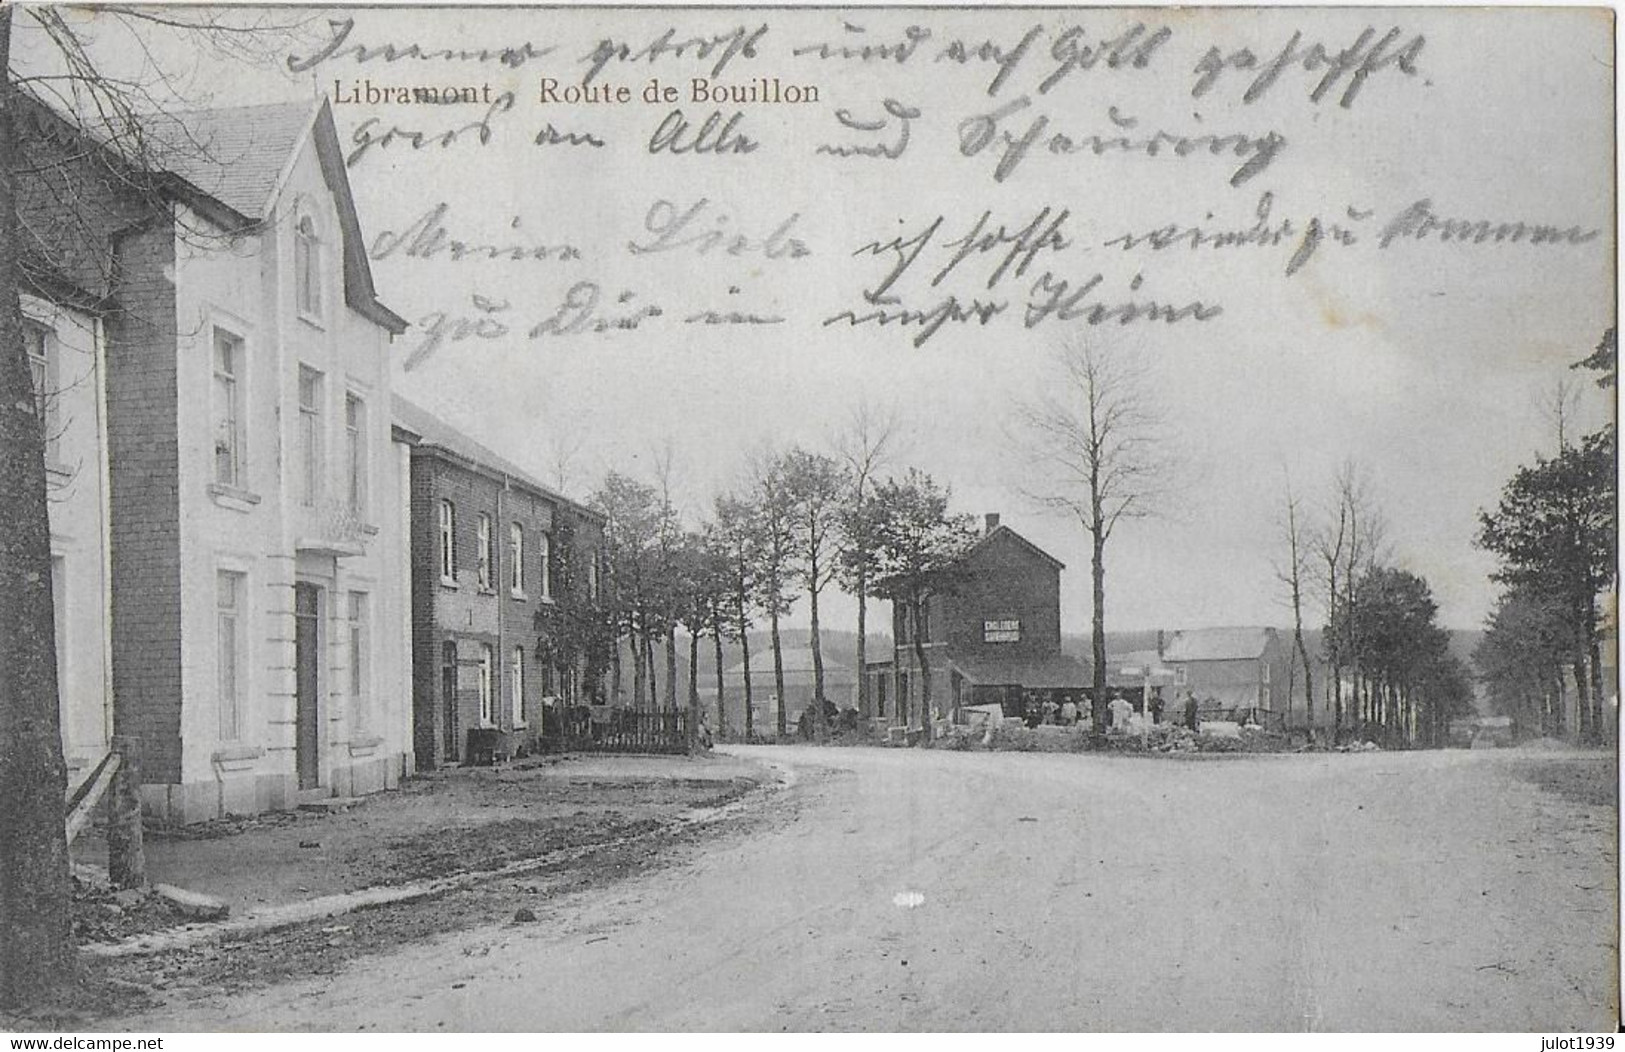 Immer getrost und auf Gott gehofft.
Libramont Route de Bouillon
Gruss an Alle und
Meine Liebe ich hoffe wieder zu kommen
zu Dir in unser Heim
Delcampe.net
julot1939